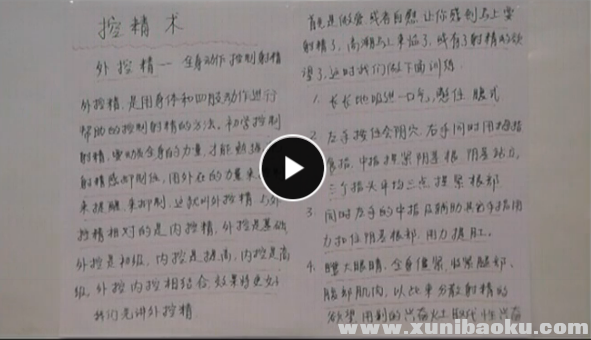 控精术
外控精——全身动作控制射精
外控精是用身体和四肢动作进行
帮助的控制射精的方法。初学控制
射精，要动员全身的力量，才能
射精感抑制住，用外在的力量来
来提醒，来抑制，这就叫外控精，与外
控精相对的是内控精，外控是基础，
外控是初级，内控是提高，内控是高
级，外控内控相结合，效果将更好
我们先讲外控精
首先是做爱或者自慰，让你感到马上要
射精了，高潮马上来临了，或有了射精的欲
望了，这时我们做下面训练
1. 长长地吸进一口气，憋住，腹式
2. 左手按住会阴穴，右手同时用拇指
食指、中指捏紧阴茎根，阴茎
三个指头平均三点捏紧根部
3. 同时左手的中指及辅助其它手指用
力扣住阴茎根部，用力提肛。
4. 瞪大眼睛，全身僵紧，收紧腿部、
腹部肌肉，以此来分散射精的
欲望，用别的兴奋来取代性兴奋
www.xunibaoku.com